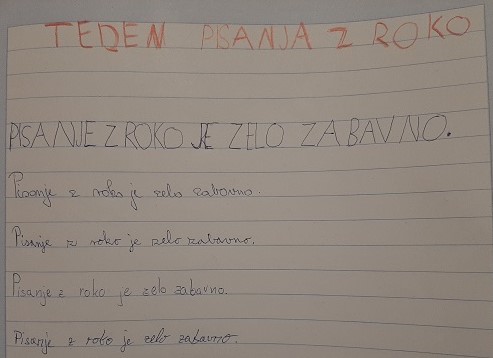 TEDEN PISANJA Z ROKO
PISANJE Z ROKO JE ZELO ZABAVNO.
Pisanje z roko je zelo zabavno.
Pisanje z roko je zelo zabavno.
Pisanje z roko je zelo zabavno.
Pisanje z roko je zelo zabavno.